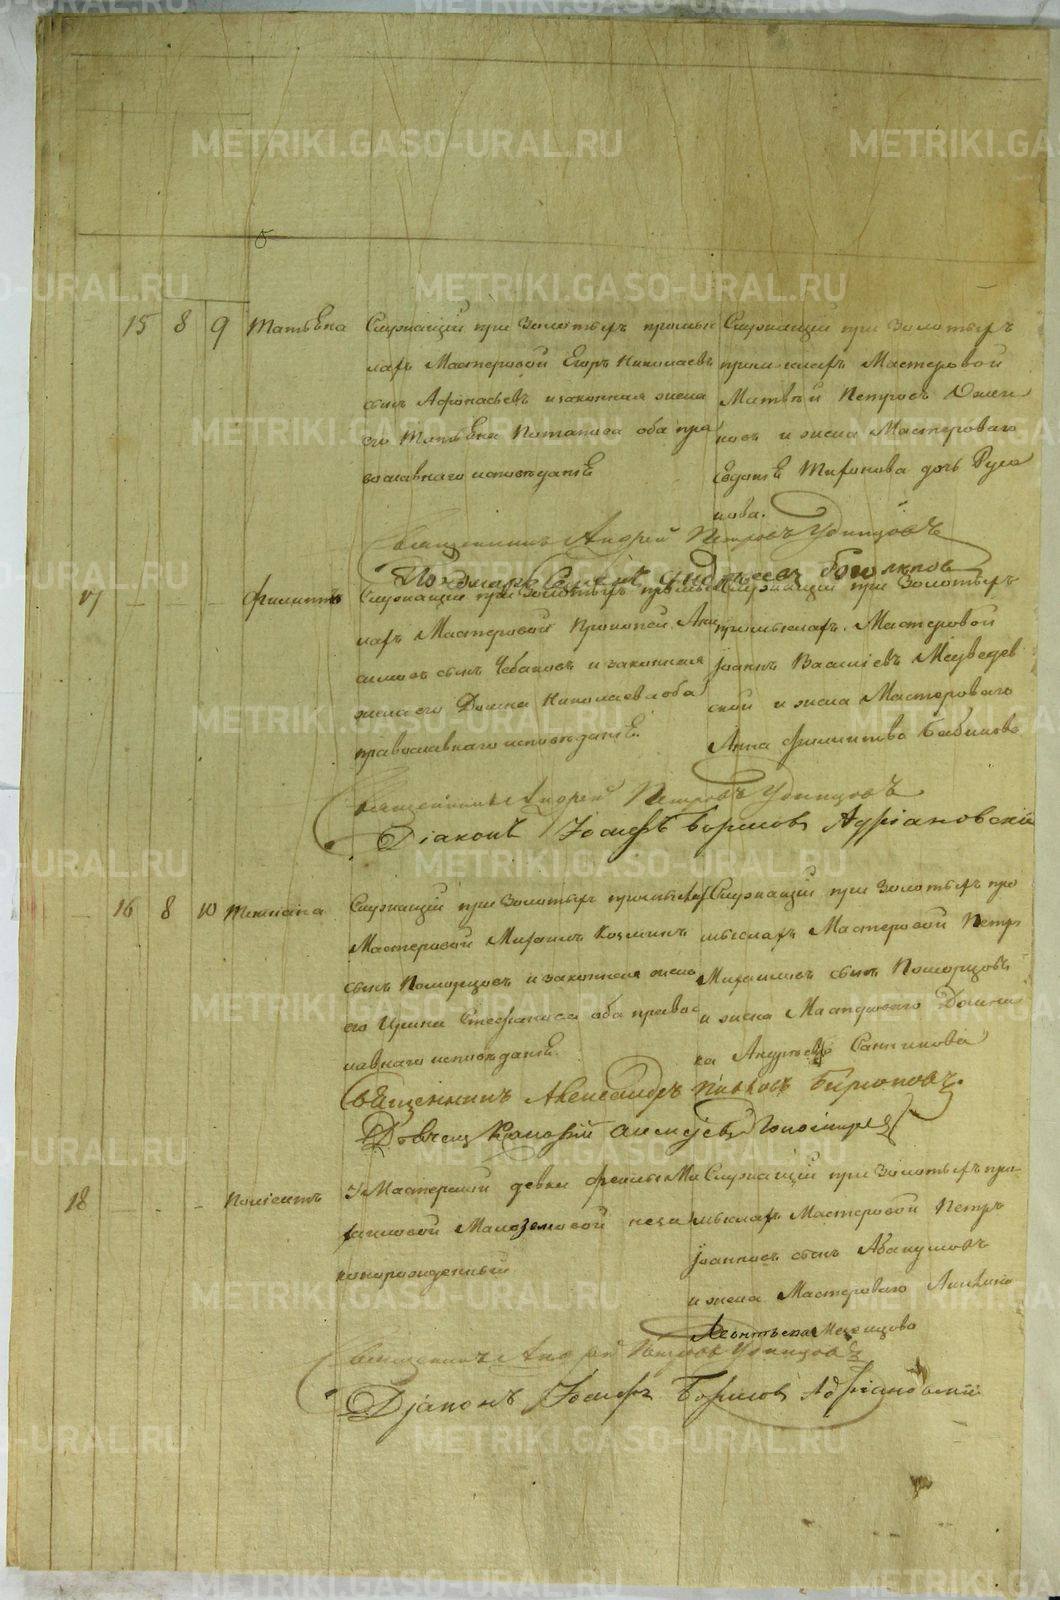 15 8 9 Татьѣна
Служащій при Золотыхъ промыс
лахъ Мастеровой Егоръ Николаевъ
сынъ Афонасьевъ и законная жена
его Татьѣна Потапова оба пра
вославнаго исповѣданіѣ
Служащій при Золотыхъ
промыслахъ Мастеровой
Матвѣй Петровъ
новъ и жена Мастероваго
Трифонова дочь Руса
кова.
Священникъ Андрей Петровъ Удинцовъ
Пономарь
17 — — Филиппъ
Служащій при Золотыхъ промыс
лахъ Мастеровой Прокопей
симовъ сынъ Чебаковъ и законная
жена его Домна Николаева оба
православнаго исповѣданіѣ.
Служащій при Золотыхъ
промыслахъ Мастеровой
Іоаннъ Василіевъ Медведев
ской и жена Мастероваго
Анна Филиппова Бабикова
Священникъ Андрей Петровъ Удинцовъ
Діаконъ Іосифъ Борисовъ Адріановскій
16 8 10 Татіана
Служащій при Золотыхъ промыслахъ
Мастеровой Михаилъ Козминъ
сынъ Поморцовъ и законная жена
его Ирина Стефанова оба правос
лавнаго исповѣданіѣ.
Служащій при Золотыхъ про
мыслахъ Мастеровой Петръ
Михаиловъ сынъ Поморцовъ
и жена Мастероваго Домни
ка Андреева Санникова
Священникъ Александръ Бирюковъ.
18 — - - Поліектъ
У Мастерской девки Феклы Ми
хаиловой Малоземовой неза
конорожденный
Служащій при Золотыхъ про-
мыслахъ Мастеровой Петръ
Іоанновъ сынъ Абакумовъ
и жена Мастероваго
Леонтьева
Священникъ Андрей Петровъ Удинцовъ
Діаконъ Іосифъ Борисовъ Адріановскій
METRIKI.GASO-URAL.RU